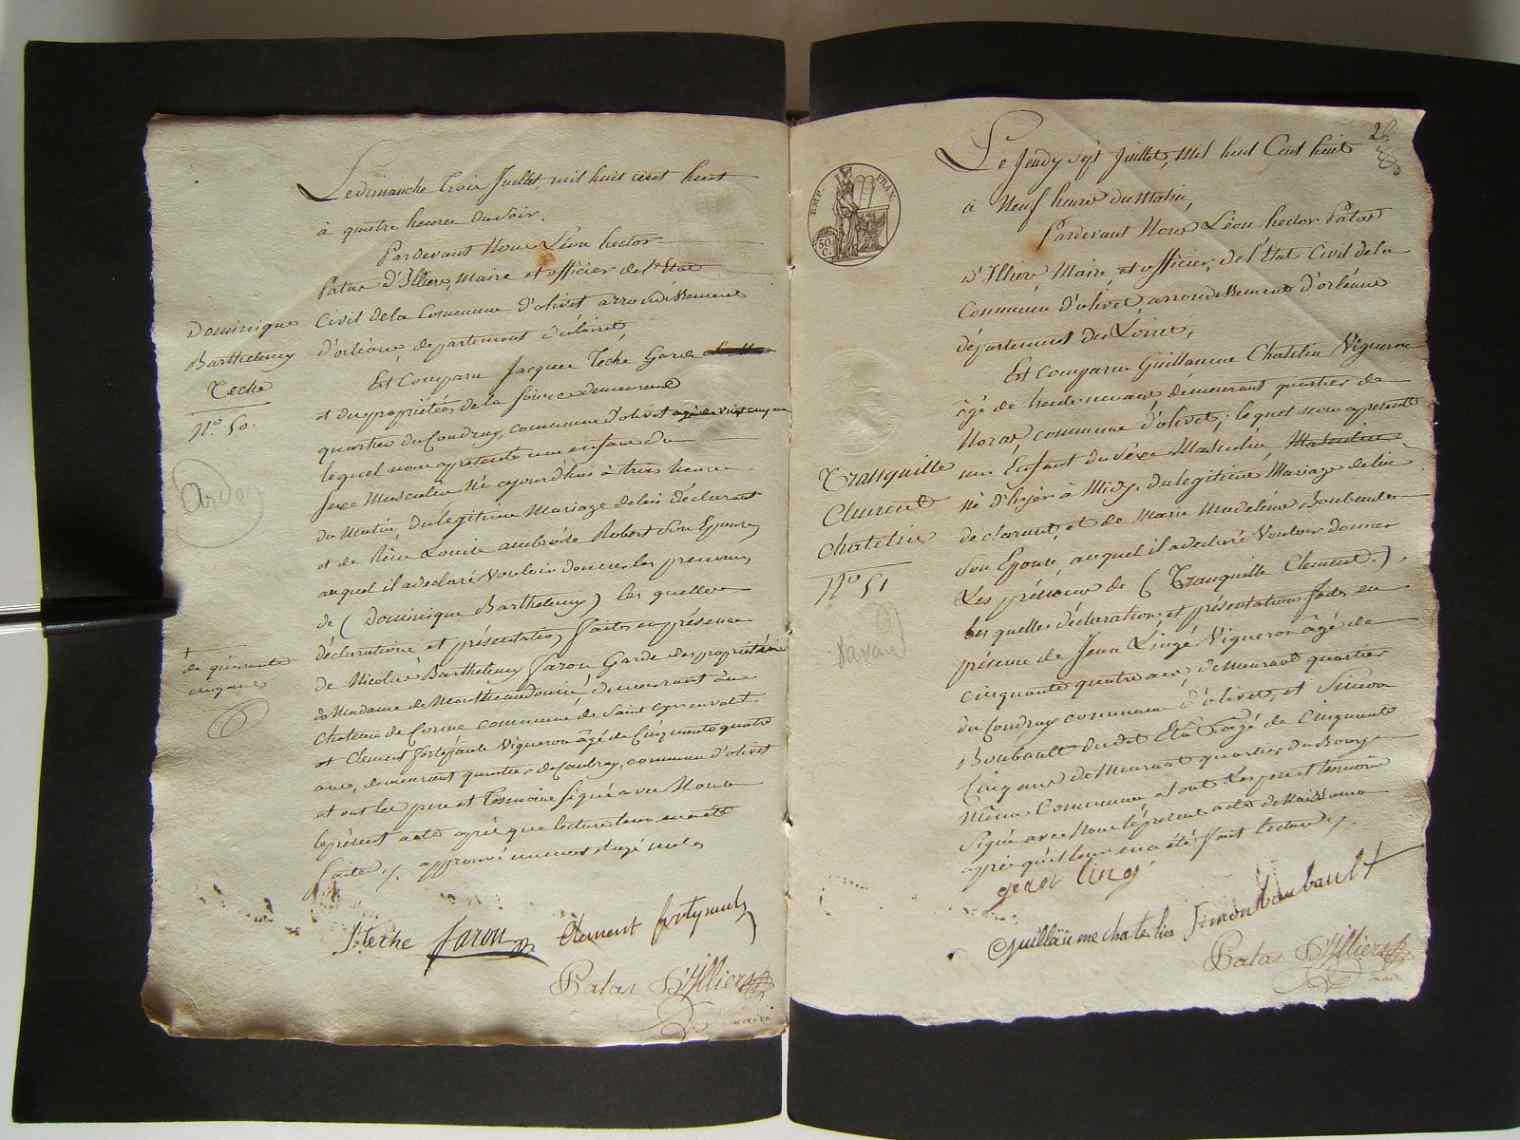 Le dimanche trois Juillet, mil huit cent huit
à quatre heures du soir.
Pardevant Nous Léon hector
Patas D'Illiers, Maire et officier de l'Etat
Civil de la Commune d'olivet arrondissement
d'orléans, departement du Loiret,
Est Comparu Jacques Teché Garde
et des propriétés de la Source demeurant
quartier du Coudray, commune d'olivet agé de vingt cinq ans
lequel nous a présenté un enfant du
Sexe Masculin Né aujourd'hui à trois heures
du Matin, du légitime Mariage de lui déclarant
et de Louise ambroise Robert Son Epouse,
auquel il a declaré Vouloir donner les prenoms
de (Dominique Barthelemy) les quelles
déclaration et présentation faites en présence
de Nicolas Barthelemy Garde des propriétés
de Madame de demeurant au
chateau de Corme commune de Saint Cyr en val
et Clement Vigneron âgé de Cinquante quatre
ans, demeurant quartier du Coudray, commune d'olivet
et ont les pere et Temoins Signé avec Nous
le présent acte après que lecture leur en a été
faite ./. approuvé
Dominique
Barthelemy
Teché
N.º 50.
de quarante
cinq ans
J. Teche
Clement
Patas D'Illiers
maire
28
EMP. FRAN.
50 C.
Le Jeudy sept Juillet, Mil huit Cent huit
à Neuf heures du Matin,
Pardevant Nous Léon hector Patas
D'Illiers Maire, et officier, de l'Etat Civil de la
Commune d'olivet, arrondissement d'orléans
département du Loiret,
Est Comparu Guillaume Chatelin Vigneron
âgé de trente neuf ans demeurant quartier de
commune d'olivet; lequel nous a présenté
un Enfant du Sexe Masculin, Masculin
Né d'hyer à Midy, du légitime Mariage de lui
déclarant, et de Marie Madeleine
Son Epouse, auquel il a declaré Vouloir donner
Les prénoms de (Tranquille Clement.)
les quelles déclaration, et présentation faites en
présence de Jean Lingé Vigneron âgé de
cinquante quatre ans demeurant quartier
du Coudray commune d'olivet, et Simon
Boubault âgé de Cinquante
Cinq ans demeurant quartier du Bourg
Même Commune, et ont Les pere et temoins
Signé avec Nous le présent acte de Naissance
après qu'il leur en a été fait lecture ./.
Tranquille
Clement
Chatelin
N.º 51
Guillaüme chatelin
Simon boubault
Patas D'Illiers
maire